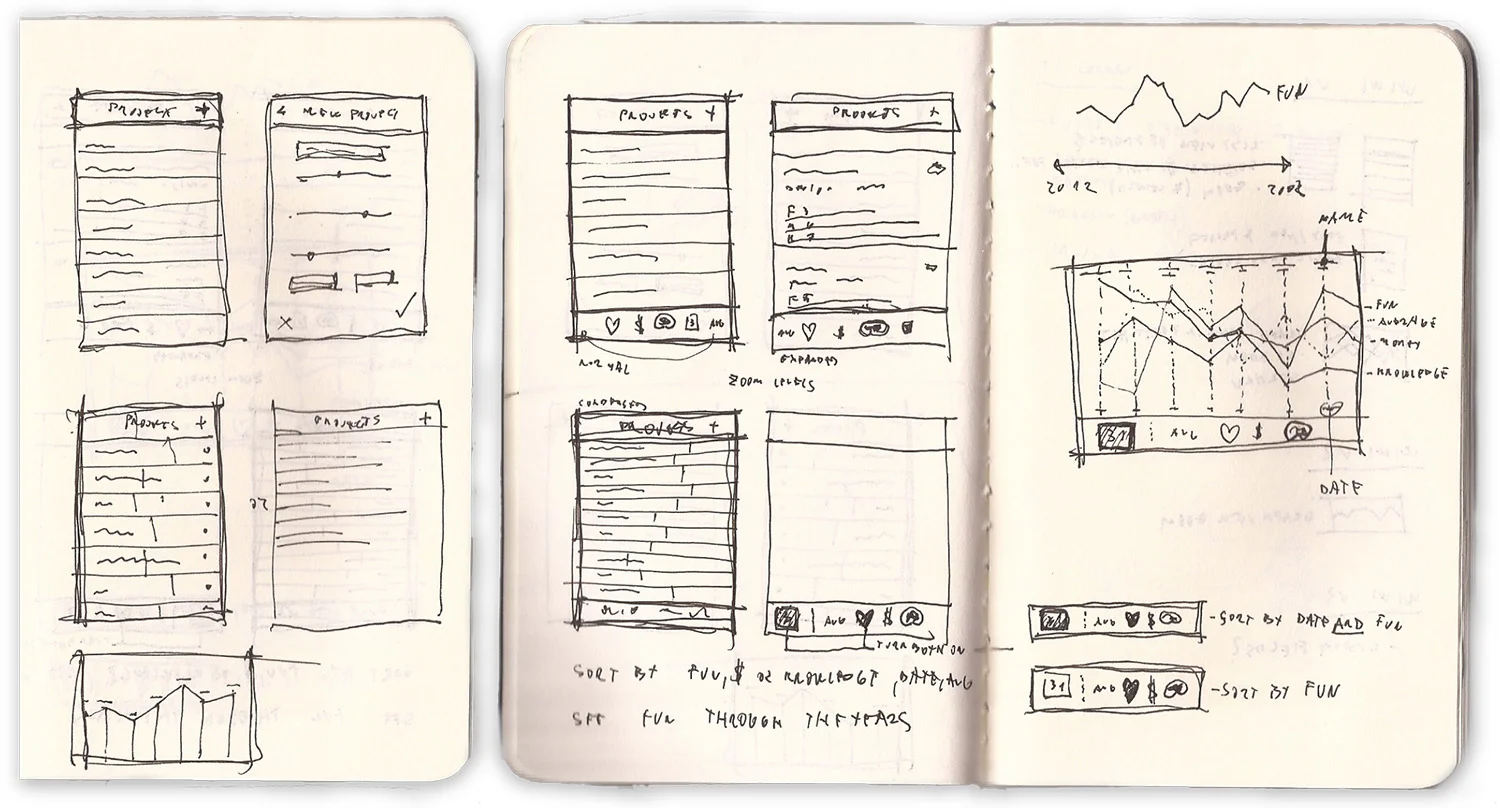 PROJECTS +
< NEW PROJECT
X
PROJECTS +
OR
PROJECTS +
PROJECTS +
$ 31 AVG
NORMAL
PROJECTS +
F 3
AVG $
EXPANDED
ZOOM LEVELS
CONDENSED
PROJECTS +
AVG $
TURN BOTH ON
SORT BY FUN, $ OR KNOWLEDGE, DATE, AVG
SEE FUN THROUGH THE YEARS
FUN
2012 2002
NAME
- FUN
- AVERAGE
- MONEY
- KNOWLEDGE
31 AVG $
DATE
AVG $ - SORT BY DATE AND FUN
31 AVG $ - SORT BY FUN